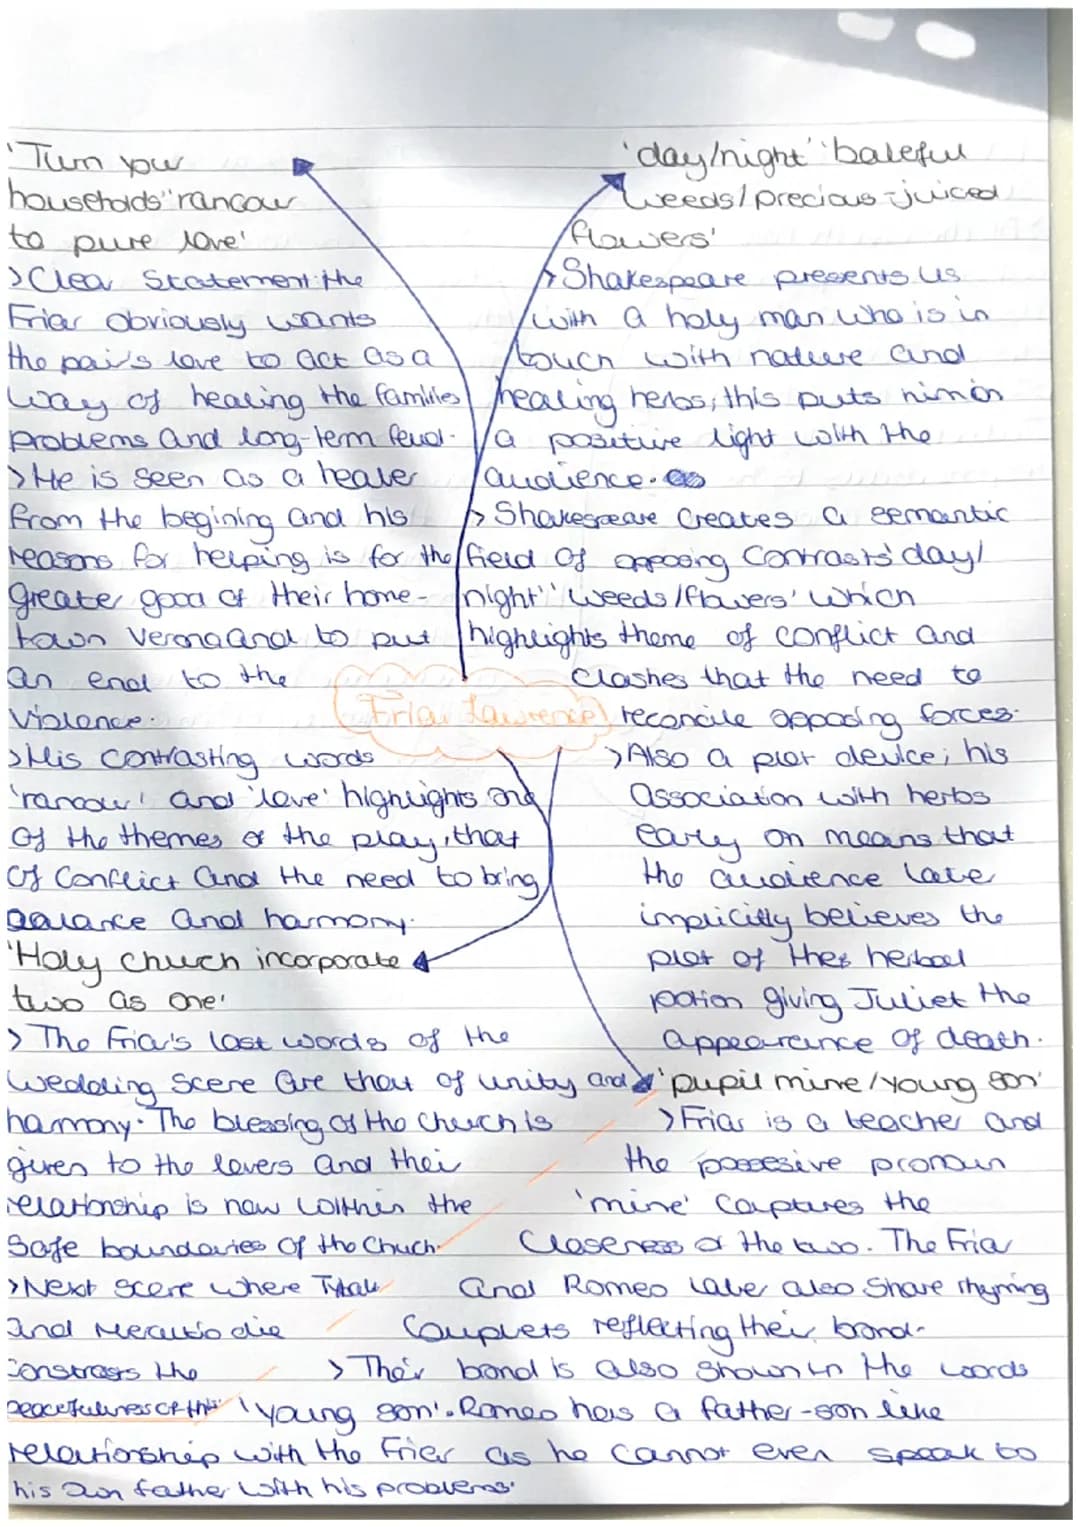 'Turn your
households' rancour
to pure love'
> Clear Statement: the
Friar obviously wants
the pair's love to act as a
way of healing the families
problems and long-term feud.
> He is seen as a healer
from the begining and his
reasons for helping is for the
greater good of their home-
town Verona and to put
an end to the
violence.
> His contrasting words
'rancour' and 'love' highlights one
of the themes of the play, that
of conflict and the need to bring
balance and harmony.
'Holy church incorporate
two as one'
> The Friar's last words of the
wedding scene are that of unity and
harmony. The blessing of the church is
given to the lovers and their
relationship is now within the
safe boundaries of the church.
> Next scene where Tybalt
and Mercutio die
constrasts the
peacefulness of this
Friar Lawrence
'day/night' 'baleful
weeds/precious-juiced
flowers'
> Shakespeare presents us
with a holy man who is in
touch with nature and
healing herbs, this puts him in
a positive light with the
audience.
> Shakespeare creates a semantic
field of opposing contrasts 'day/
night' 'weeds/flowers' which
highlights theme of conflict and
clashes that the need to
reconcile opposing forces.
> Also a plot device; his
association with herbs
early on means that
the audience later
implicitly believes the
plot of the herbal
potion giving Juliet the
appearance of death.
'pupil mine/young son'
> Friar is a teacher and
the possesive pronoun
'mine' captures the
closeness of the two. The Friar
and Romeo later also share rhyming
couplets reflecting their bond.
> Their bond is also shown in the words
'young son'. Romeo has a father-son like
relationship with the Friar as he cannot even speak to
his own father with his problems.